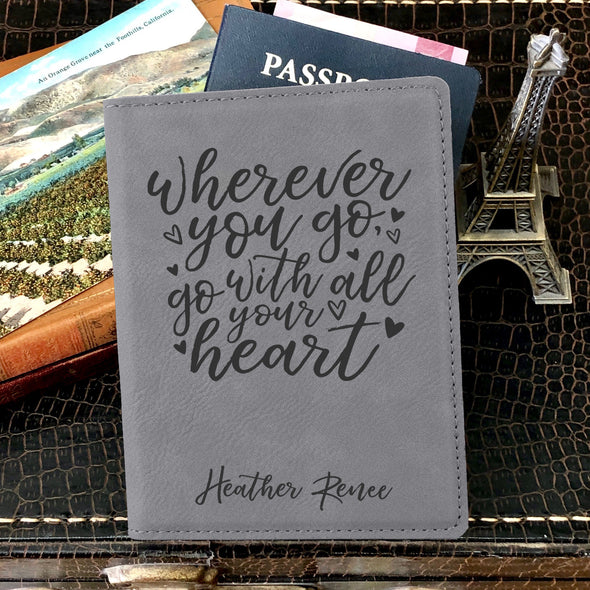 An Orange Grove near the Foothills, California.
PASSPO
wherever
you go,
go with all
your
heart
Heather Renee